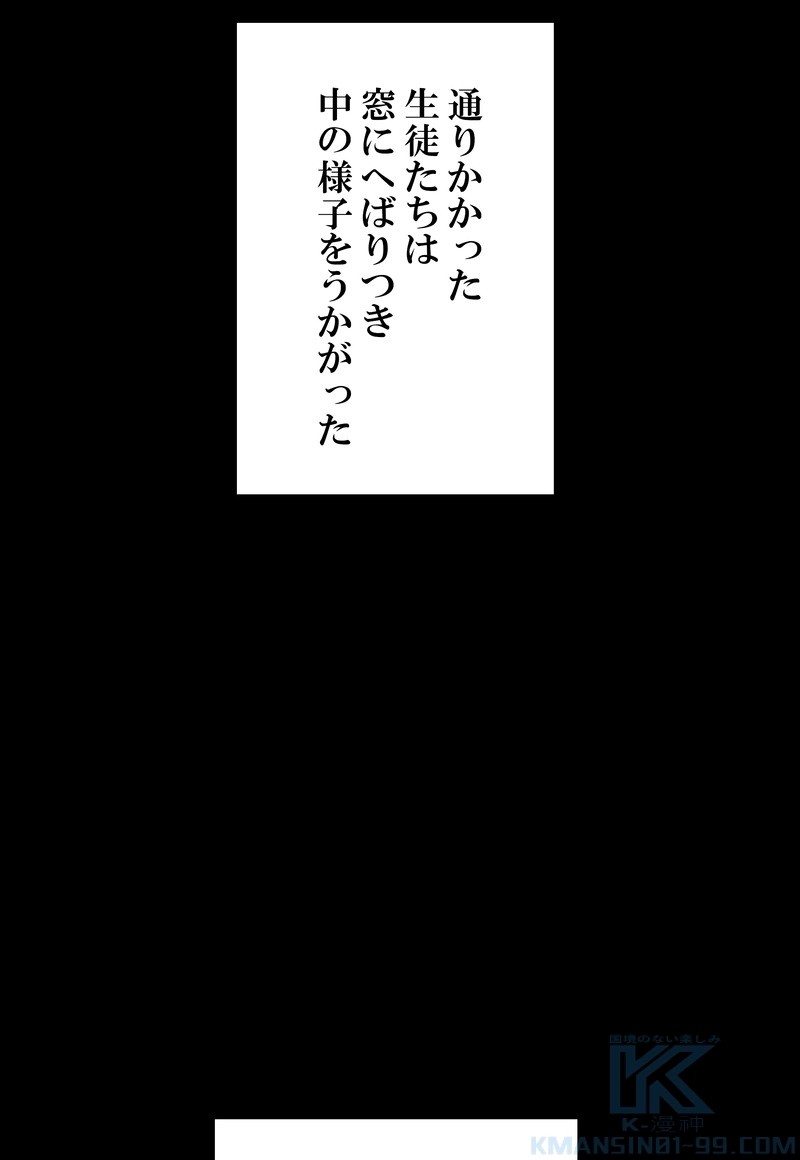 通りかかった
生徒たちは
窓にへばりつき
中の様子をうかがった
国境のない楽しみ
K-漫神
KMANSIN01-99.COM